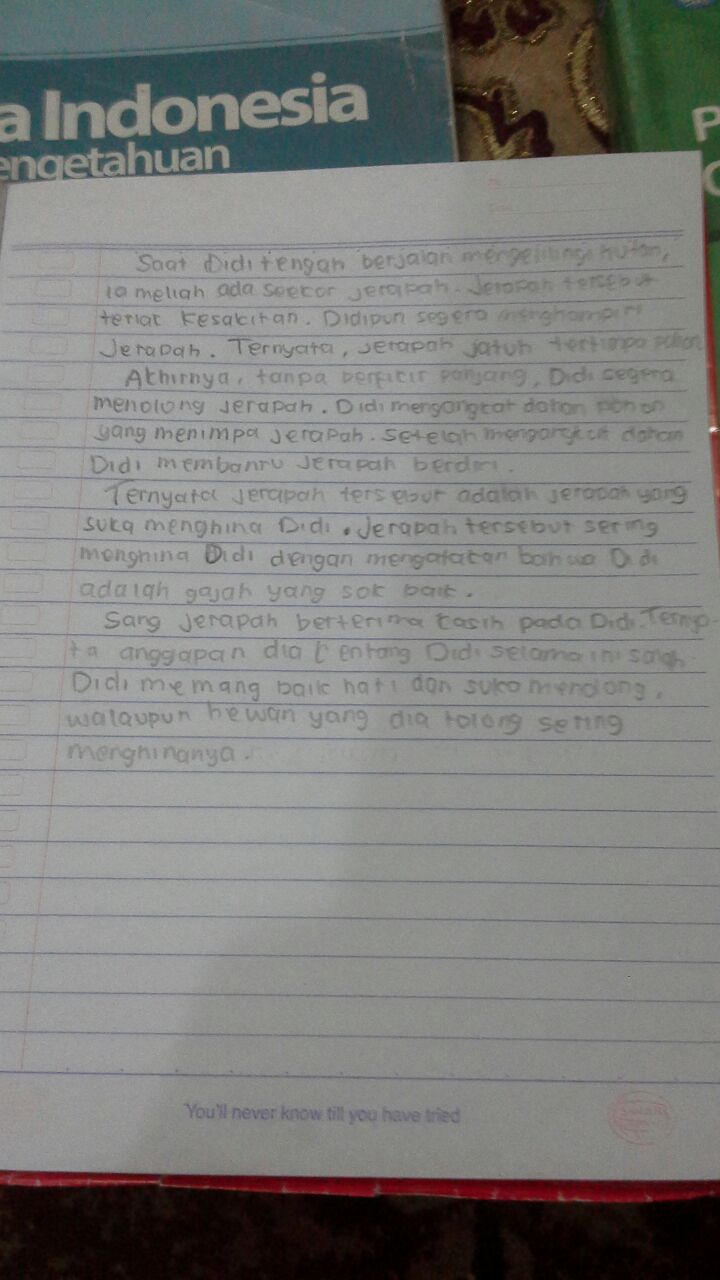 a Indonesia
engetahuan
P
Saat Didi tengah berjalan mengelilingi hutan,
ia meliah ada seekor jerapah. Jerapah tersebut
terliat kesakitan. Didipun segera menghampiri
Jerapah. Ternyata, jerapah jatuh tertimpa pohon
Akhirnya, tanpa berficir panjang, Didi segera
menolong jerapah. Didi mengangkat dahan pohon
yang menimpa jerapah. Setelah mengangkat dahan
Didi membantu jerapah berdiri.
Ternyata jerapah tersebut adalah jerapah yang
suka menghina Didi. Jerapah tersebut sering
menghina Didi dengan mengatakan bahwa Didi
adalah gajah yang sok baik.
Sang jerapah berterima kasih pada Didi. Ternya-
ta anggapan dia tentang Didi selama ini salah.
Didi memang baik hati dan suka menolong,
walaupun hewan yang dia tolong sering
menghinanya.
You'll never know till you have tried